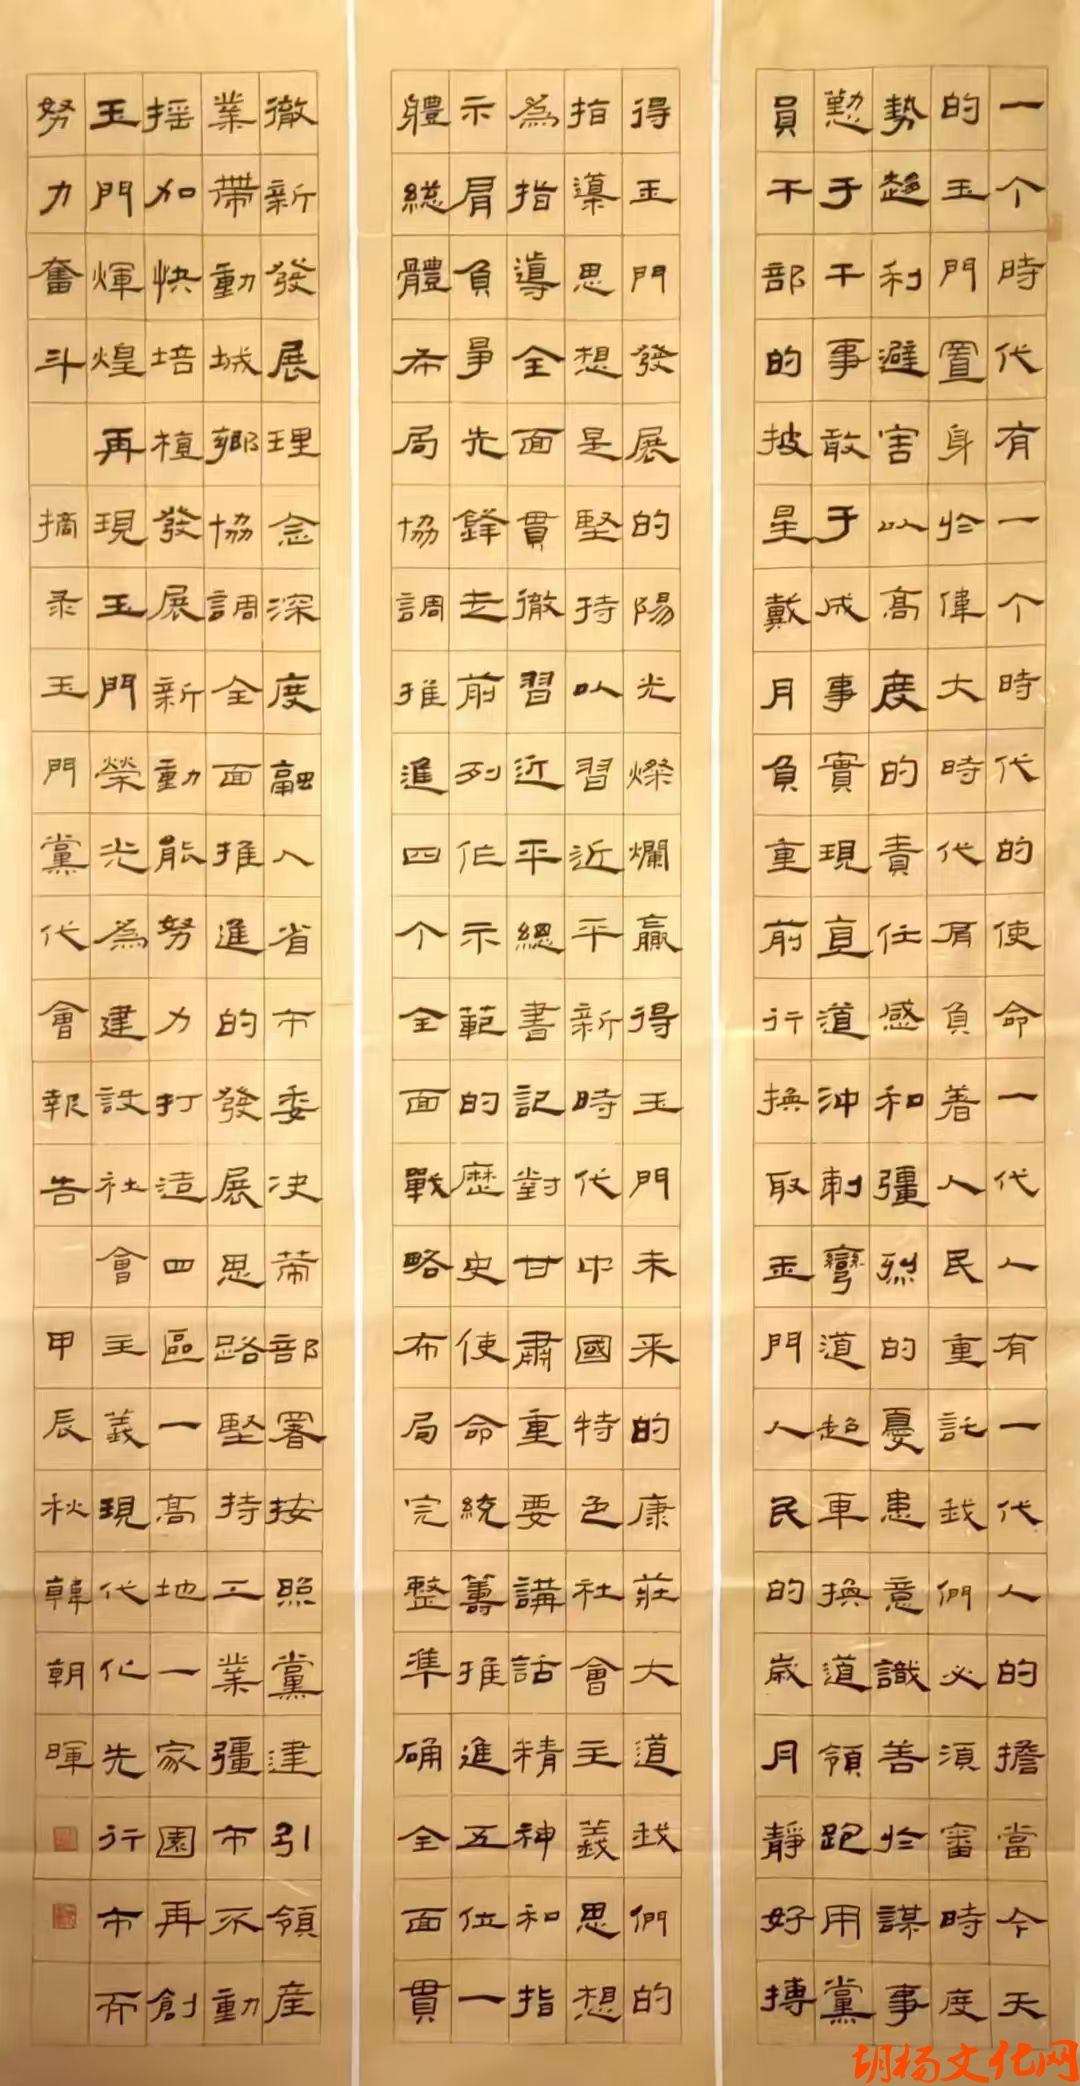 一个時代有一个時代的使命一代人有一代人的擔當今天
的玉門置身於偉大時代肩負着人民重託我們必須審時度
勢趨利避害以高度的責任感和彊烈的憂患意識善於謀事
懃于干事敢于成事實現直道沖刺彎道超車換道領跑用黨
員干部的披星戴月負重前行換取玉門人民的歲月靜好搏
得玉門發展的陽光燦爛贏得玉門未来的康莊大道我們的
指導思想是堅持以習近平新時代中國特色社會主義思想
為指導全面貫徹習近平總書記對甘肅重要講話精神和指
示肩負爭先鋒走前列作示範的歷史使命統籌推進五位一
體總體布局協調推進四个全面戰略布局完整準确全面貫
徹新發展理念深度融入省市委决策部署按照黨建引領産
業帶動城鄉協調全面推進的發展思路堅持工業彊市不動
摇加快培植發展新動能努力打造四區一高地一家園再創
玉門輝煌再現玉門榮光為建設社會主義現代化先行市而
努力奮斗 摘录玉門黨代會報告 甲辰秋韓朝暉
胡杨文化网